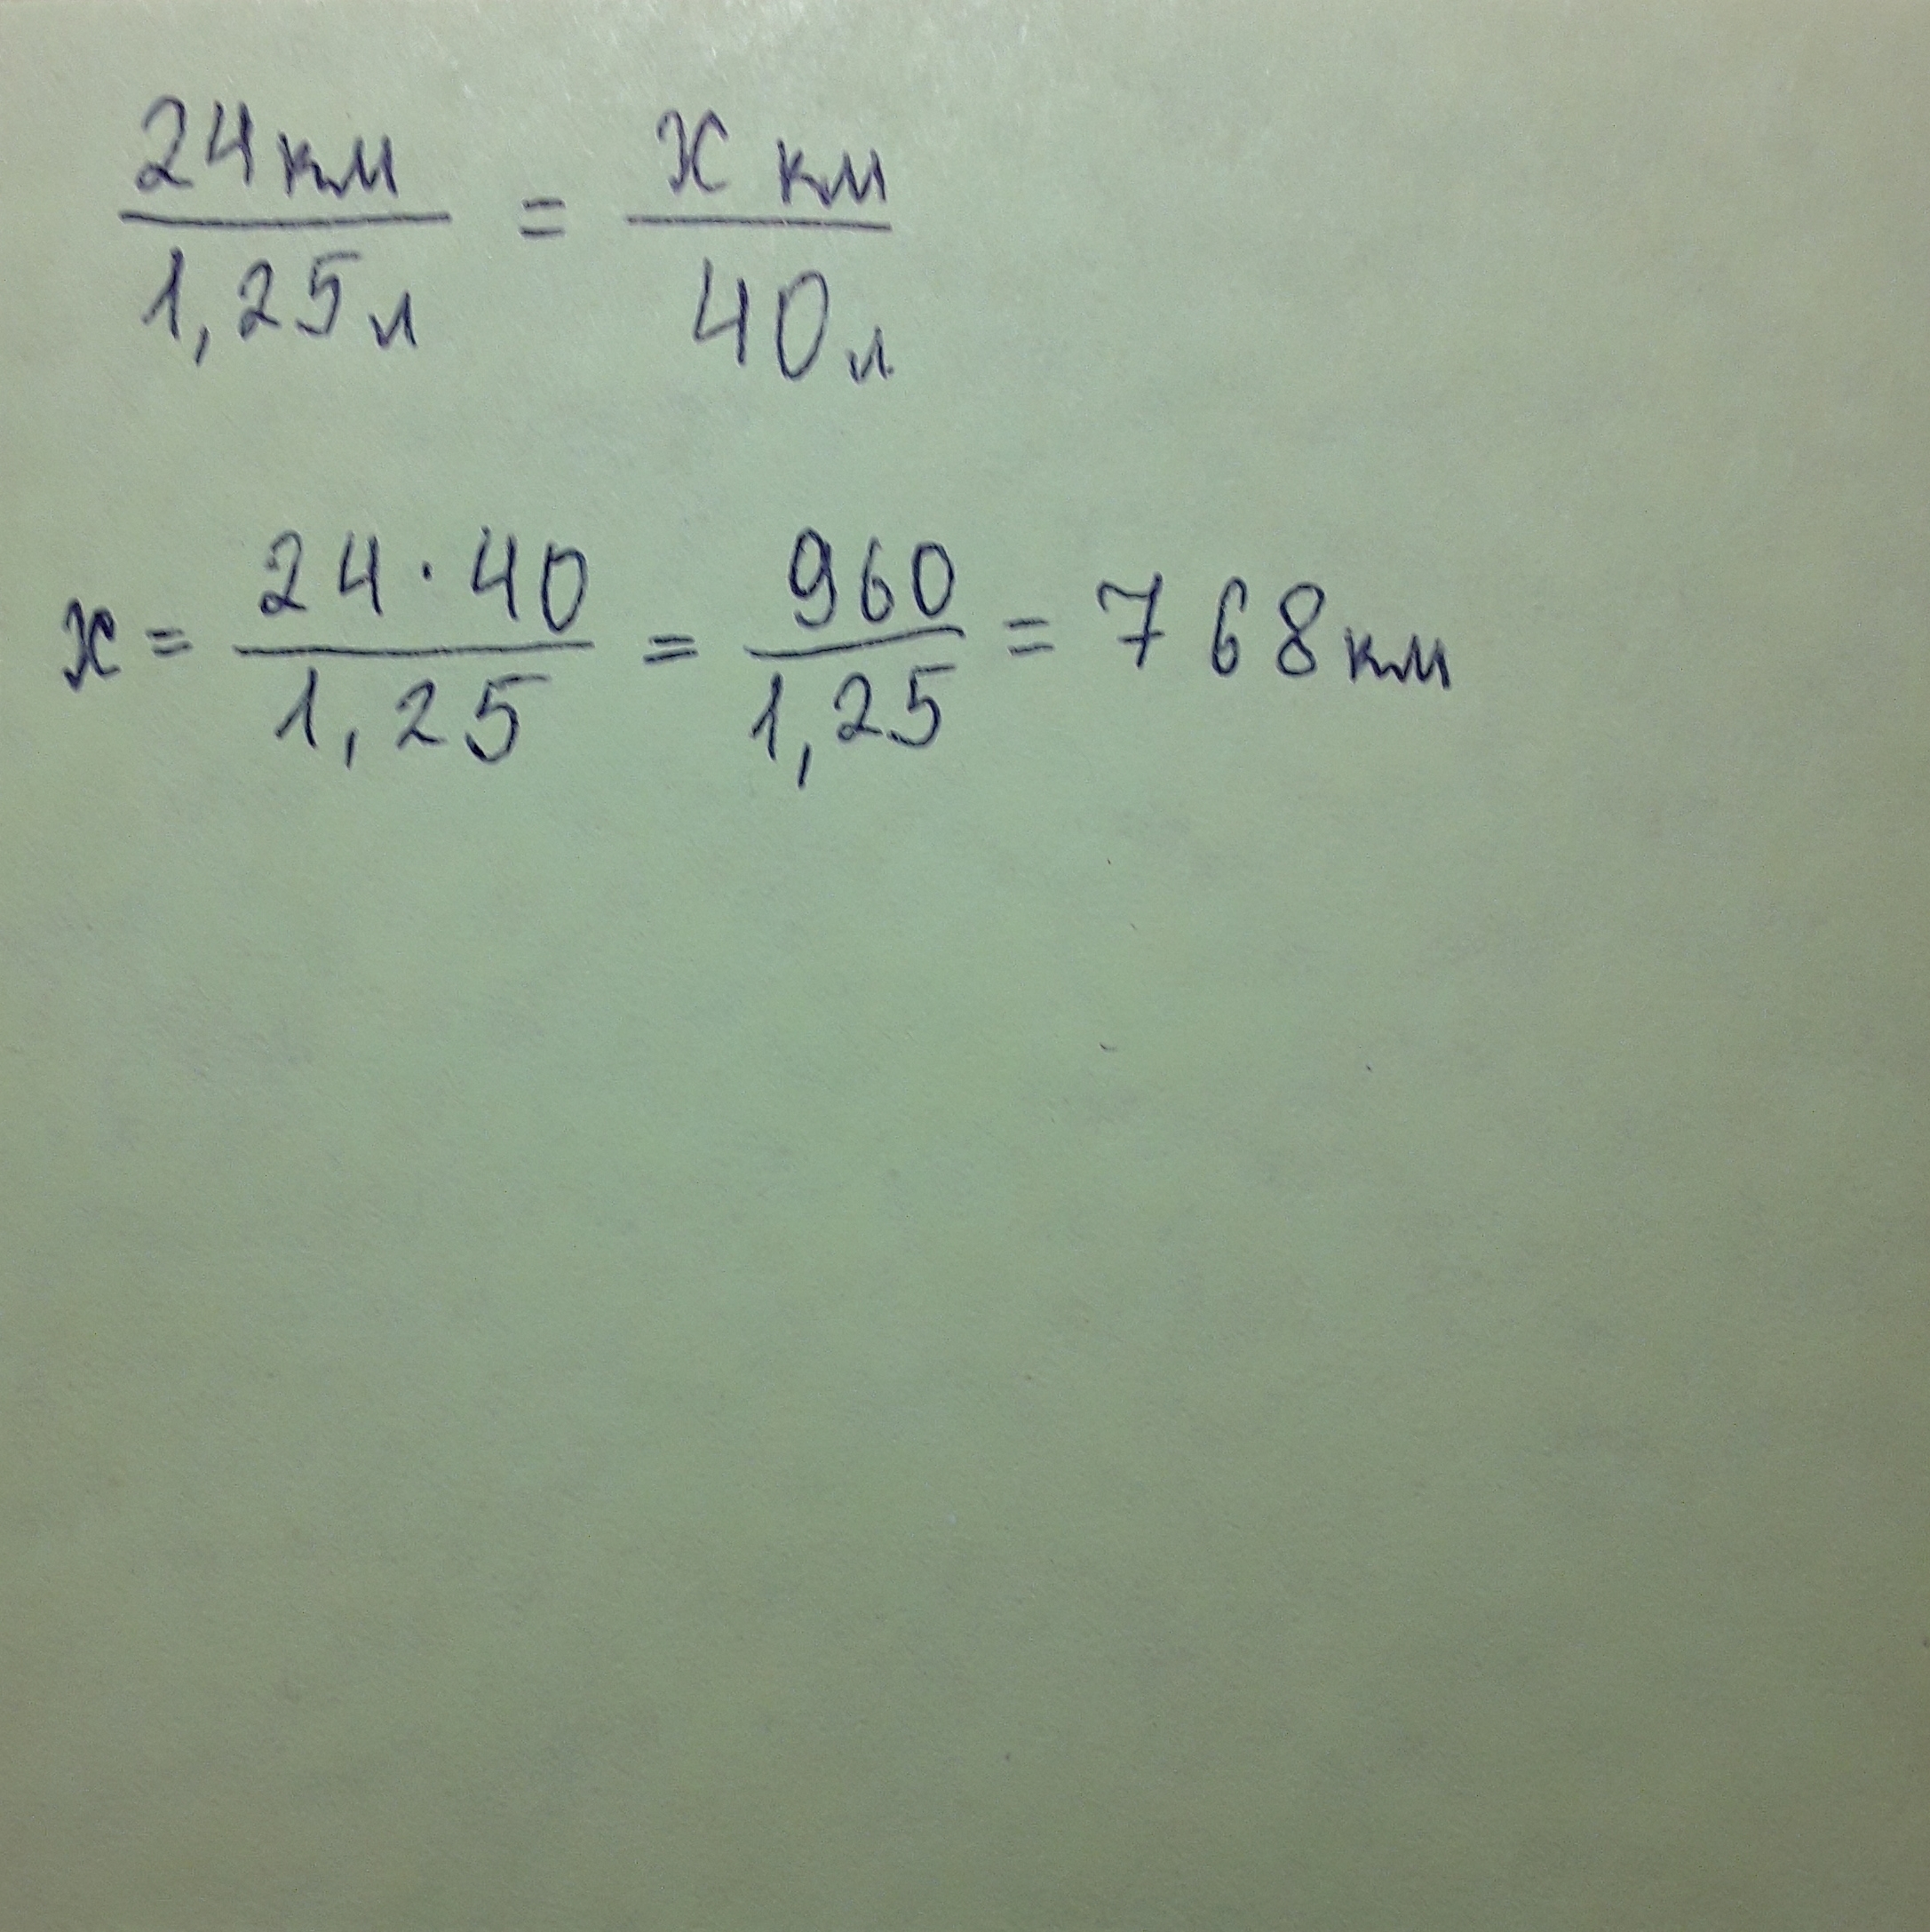 24км / 1,25л = х км / 40л
х = 24·40 / 1,25 = 960 / 1,25 = 768км